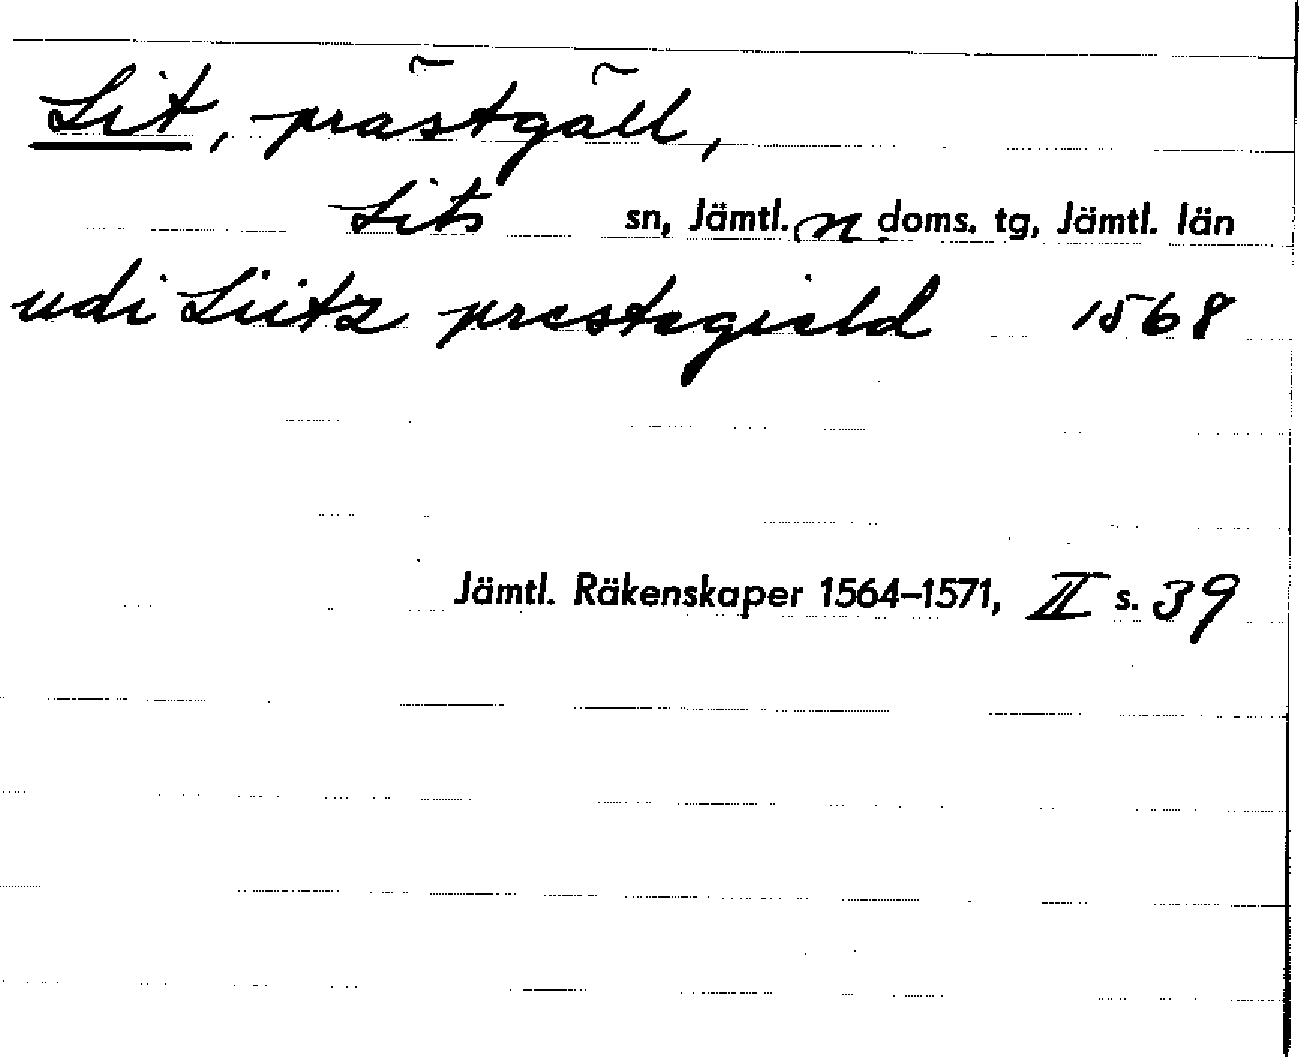 Lit, prästgäll,
Lits sn, Jämtl. n doms. tg, Jämtl. län
udi Liitz prestegield 1568
Jämtl. Räkenskaper 1564–1571, II s. 39